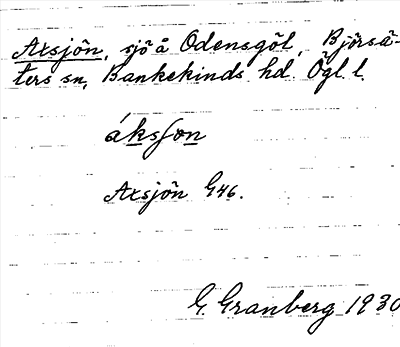 Axsjön, sjö å Odensgöl, Björsä-
ters sn, Bankekinds hd. Ögl. l.
áksʃon
Axsjön G46.
G. Granberg 1930